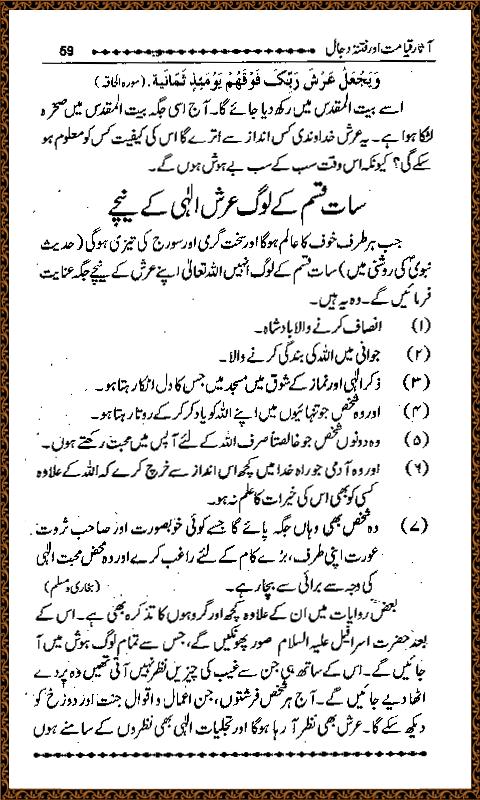 آثار قیامت اور فتنۂ دجال 59
وَیَجْعَلُ عَرْشَ رَبِّکَ فَوْقَهُمْ یَوْمَئِذٍ ثَمَانِیَة. (سورہ الحاقہ)
اسے بیت المقدس میں رکھ دیا جائے گا۔ آج اسی جگہ بیت المقدس میں صخرہ
لٹکا ہوا ہے۔ یہ عرش خداوندی کس انداز سے اترے گا اس کی کیفیت کس کو معلوم ہو
سکے گی؟ کیونکہ اس وقت سب کے سب بے ہوش ہوں گے۔
سات قسم کے لوگ عرش الٰہی کے نیچے
جب ہر طرف خوف کا عالم ہوگا اور سخت گرمی اور سورج کی تیزی ہوگی (حدیث
نبوی کی روشنی میں) سات قسم کے لوگ انہیں اللہ تعالیٰ اپنے عرش کے نیچے جگہ عنایت
فرمائیں گے۔ وہ یہ ہیں۔
(۱) انصاف کرنے والا بادشاہ۔
(۲) جوانی میں اللہ کی بندگی کرنے والا۔
(۳) ذکر الٰہی اور نماز کے شوق میں مسجد میں جس کا دل اٹکا رہتا ہو۔
(۴) اور وہ شخص جو تنہائیوں میں اپنے اللہ کو یاد کر کر کے روتا رہتا ہو۔
(۵) وہ دونوں شخص جو خالصتاً صرف اللہ کے لئے آپس میں محبت رکھتے ہوں۔
(۶) اور وہ آدمی جو راہ خدا میں کچھ اس انداز سے خرچ کرے کہ اللہ کے علاوہ
کسی کو بھی اس کی خیرات کا علم نہ ہو۔
(۷) وہ شخص بھی وہاں جگہ پائے گا جسے کوئی خوبصورت اور صاحب ثروت
عورت اپنی طرف، برے کام کے لئے راغب کرے اور وہ محض محبت الٰہی
کی وجہ سے برائی سے بچا رہے۔ (بخاری و مسلم)
بعض روایات میں ان کے علاوہ کچھ اور گروہوں کا تذکرہ بھی ہے۔ اس کے
بعد حضرت اسرافیل علیہ السلام صور پھونکیں گے، جس سے تمام لوگ ہوش میں آ
جائیں گے۔ اس کے ساتھ ہی جن سے غیب کی چیزیں نظر نہیں آتی تھیں وہ پردے
اٹھا دیے جائیں گے۔ آج ہر شخص فرشتوں، جن اعمال و اقوال جنت اور دوزخ کو
دیکھ سکے گا۔ عرش بھی نظر آ رہا ہوگا اور تجلیات الٰہی بھی نظروں کے سامنے ہوں